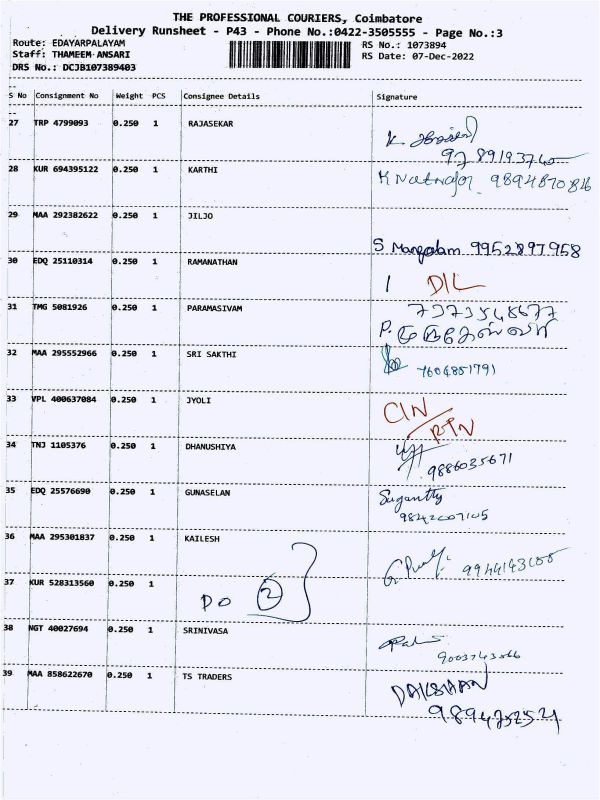 THE PROFESSIONAL COURIERS, Coimbatore
Delivery Runsheet - P43 - Phone No.:0422-3505555 - Page No.:3
Route: EDAYARPALAYAM RS No.: 1073894
Staff: THAMEEM ANSARI RS Date: 07-Dec-2022
DRS No.: DCJB107389403
S No Consignment No Weight PCS Consignee Details Signature
27 TRP 4799093 0.250 1 RAJASEKAR
28 KUR 694395122 0.250 1 KARTHI K Natraja 9894870816
29 MAA 292382622 0.250 1 JILJO S Mangalam 9952897958
30 EDQ 25110314 0.250 1 RAMANATHAN 1 D/L
31 TMG 5081926 0.250 1 PARAMASIVAM 7373548677
P.
32 MAA 295552966 0.250 1 SRI SAKTHI 7604851791
33 VPL 400637084 0.250 1 JYOLI C/N
RTN
34 TNJ 1105376 0.250 1 DHANUSHIYA 9886035671
35 EDQ 25576690 0.250 1 GUNASELAN Suganthy
9842007105
36 MAA 295301837 0.250 1 KAILESH
37 KUR 528313560 0.250 1 DO 2
38 NGT 40027694 0.250 1 SRINIVASA
9003743566
39 MAA 858622670 0.250 1 TS TRADERS DAKSHAN